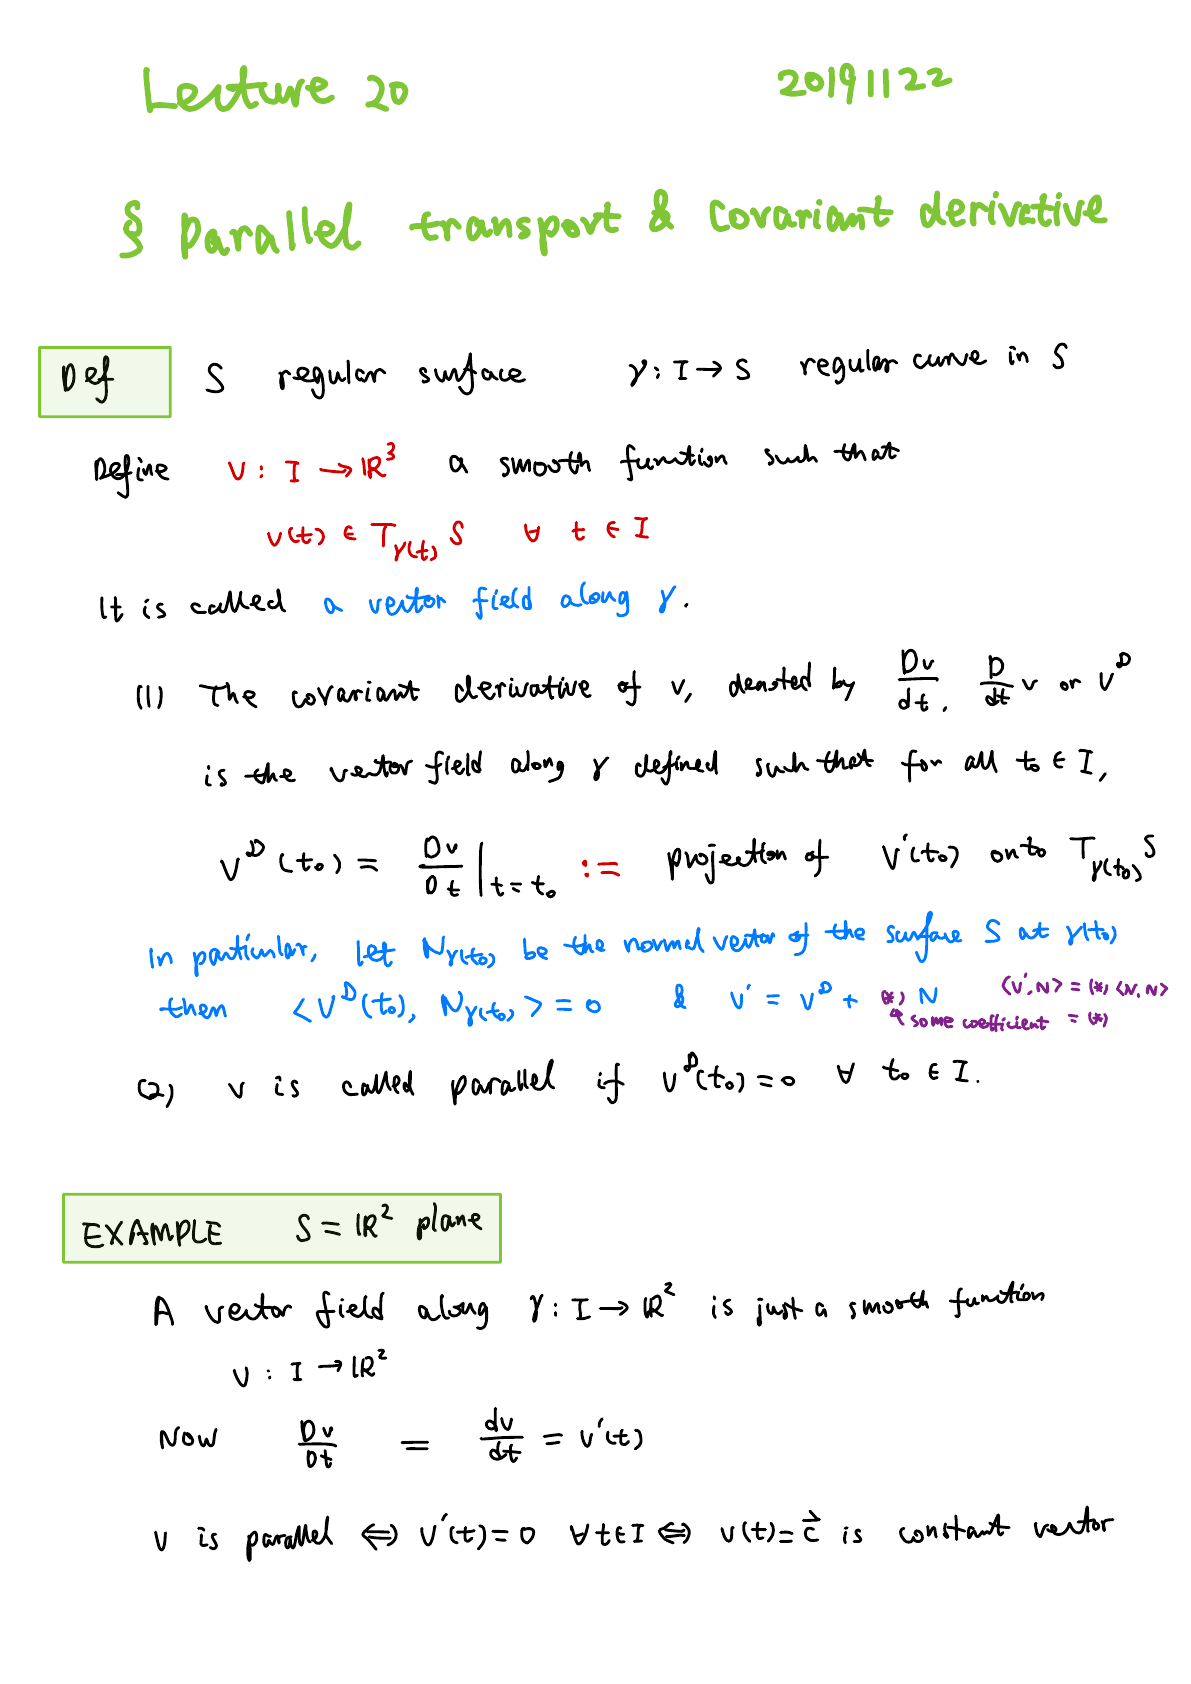 Lecture 20 20191122
§ Parallel transport & covariant derivative
Def S regular surface γ: I → S regular curve in S
Define v : I → ℝ³ a smooth function such that
v(t) ∈ T_γ(t) S ∀ t ∈ I
It is called a vector field along γ.
(1) The covariant derivative of v, denoted by Dv/dt, D/dt v or v^D
is the vector field along γ defined such that for all t₀ ∈ I,
v^D(t₀) = Dv/Dt |_t=t₀ := projection of v'(t₀) onto T_γ(t₀) S
In particular, let N_γ(t₀) be the normal vector of the surface S at γ(t₀)
then <v^D(t₀), N_γ(t₀)> = 0 & v' = v^D + (*) N <v', N> = (*) <N, N>
some coefficient = (*)
(2) v is called parallel if v^D(t₀) = 0 ∀ t₀ ∈ I.
EXAMPLE S = ℝ² plane
A vector field along γ: I → ℝ² is just a smooth function
v : I → ℝ²
Now Dv/Dt = dv/dt = v'(t)
v is parallel ⟺ v'(t) = 0 ∀ t ∈ I ⟺ v(t) = c⃗ is constant vector